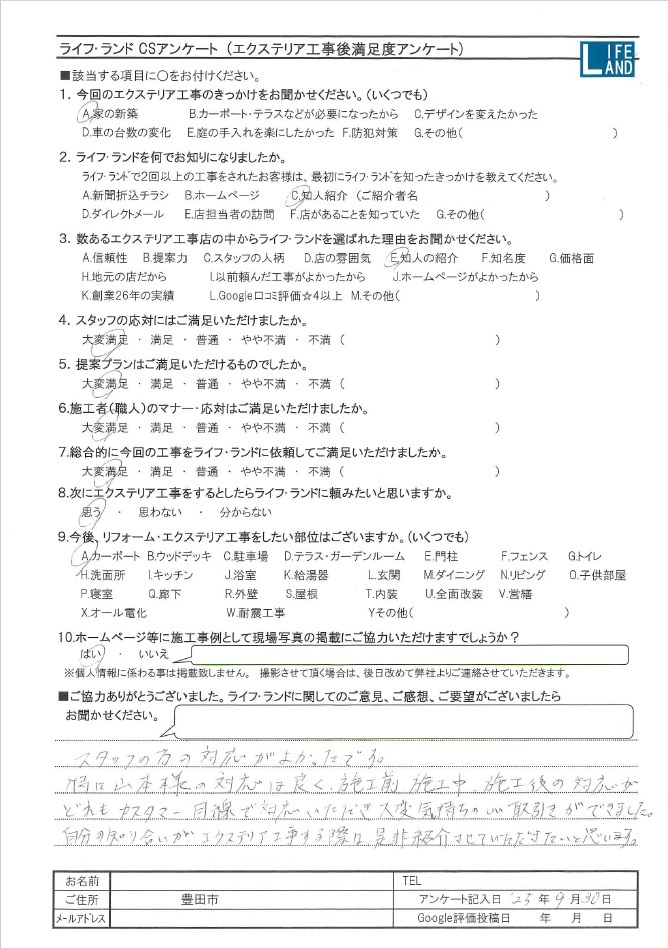 ライフ・ランド CSアンケート（エクステリア工事後満足度アンケート）
LIFE LAND
■該当する項目に〇をお付けください。
1. 今回のエクステリア工事のきっかけをお聞かせください。（いくつでも）
A.家の新築 B.カーポート・テラスなどが必要になったから C.デザインを変えたかった
D.車の台数の変化 E.庭の手入れを楽にしたかった F.防犯対策 G.その他( )
2. ライフ・ランドを何でお知りになりましたか。
ライフ・ランドで2回以上の工事をされたお客様は、最初にライフ・ランドを知ったきっかけを教えてください。
A.新聞折込チラシ B.ホームページ C.知人紹介 （ご紹介者名 ）
D.ダイレクトメール E.店担当者の訪問 F.店があることを知っていた G.その他( )
3. 数あるエクステリア工事店の中からライフ・ランドを選ばれた理由をお聞かせください。
A.信頼性 B.提案力 C.スタッフの人柄 D.店の雰囲気 E.知人の紹介 F.知名度 G.価格面
H.地元の店だから I.以前頼んだ工事がよかったから J.ホームページがよかったから
K.創業26年の実績 L.Google口コミ評価☆4以上 M.その他( )
4. スタッフの応対にはご満足いただけましたか。
大変満足 ・ 満足 ・ 普通 ・ やや不満 ・ 不満 （ ）
5. 提案プランはご満足いただけるものでしたか。
大変満足 ・ 満足 ・ 普通 ・ やや不満 ・ 不満 （ ）
6.施工者（職人）のマナー・応対はご満足いただけましたか。
大変満足 ・ 満足 ・ 普通 ・ やや不満 ・ 不満 （ ）
7.総合的に今回の工事をライフ・ランドに依頼してご満足いただけましたか。
大変満足 ・ 満足 ・ 普通 ・ やや不満 ・ 不満 （ ）
8.次にエクステリア工事をするとしたらライフ・ランドに頼みたいと思いますか。
思う ・ 思わない ・ 分からない
9.今後、リフォーム・エクステリア工事をしたい部位はございますか。（いくつでも）
A.カーポート B.ウッドデッキ C.駐車場 D.テラス・ガーデンルーム E.門柱 F.フェンス G.トイレ
H.洗面所 I.キッチン J.浴室 K.給湯器 L.玄関 M.ダイニング N.リビング O.子供部屋
P.寝室 Q.廊下 R.外壁 S.屋根 T.内装 U.全面改装 V.営繕
X.オール電化 W.耐震工事 Yその他( )
10.ホームページ等に施工事例として現場写真の掲載にご協力いただけますでしょうか？
はい ・ いいえ
※個人情報に係わる事は掲載致しません。 撮影させて頂く場合は、後日改めて弊社よりご連絡させていただきます。
■ご協力ありがとうございました。ライフ・ランドに関してのご意見、ご感想、ご要望がございましたら
お聞かせください。
スタッフの方の対応がよかったです。
山本様の対応は良く、施工前、施工中、施工後の対応が
どれもカスタマー目線で対応いただき大変気持ちのいい取引きができました。
自分の知り合いがエクステリア工事する際は、是非紹介させていただきたいと思います。
お名前 TEL
ご住所 豊田市 アンケート記入日 '25 年 9 月 30 日
メールアドレス Google評価投稿日 年 月 日